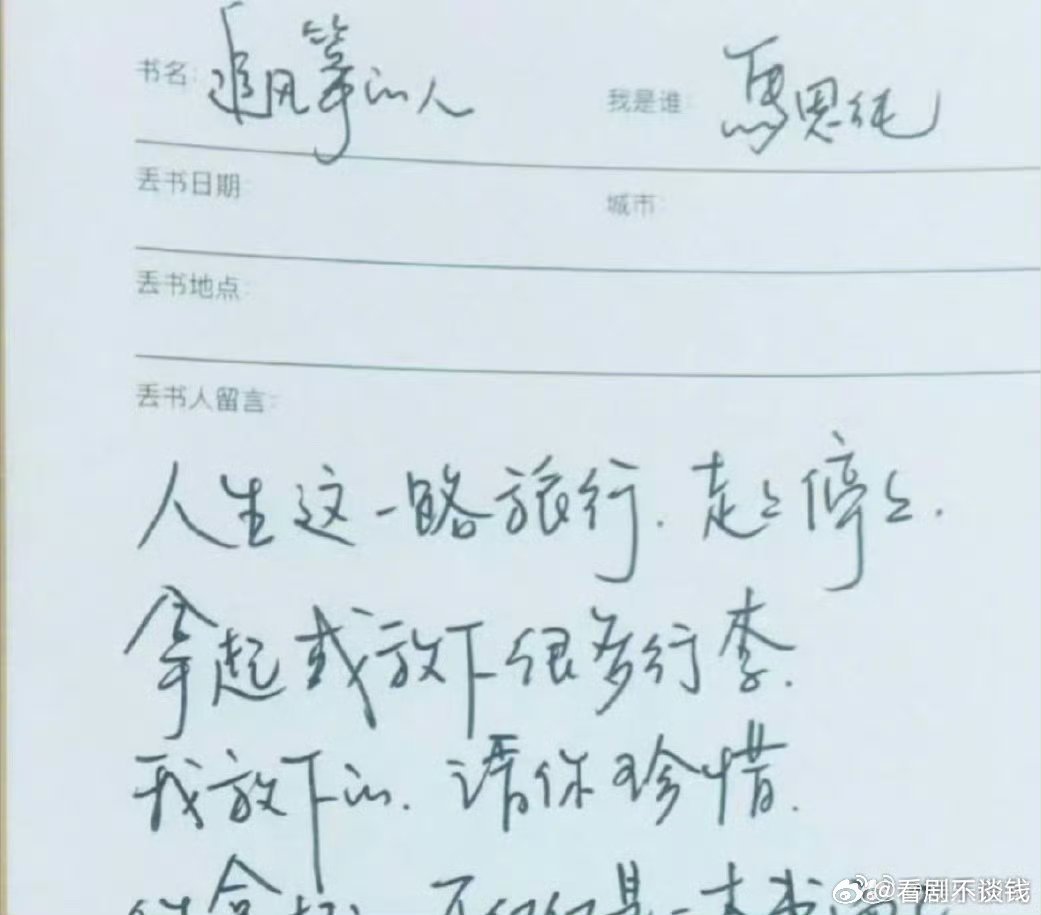 书名: 追风筝的人 我是谁: 馬思纯
丢书日期: 城市:
丢书地点:
丢书人留言:
人生这一路旅行. 走走停停.
拿起或放下很多行李.
我放下的. 请你珍惜.
你拿起 不仅仅是一本书
@看剧不谈钱